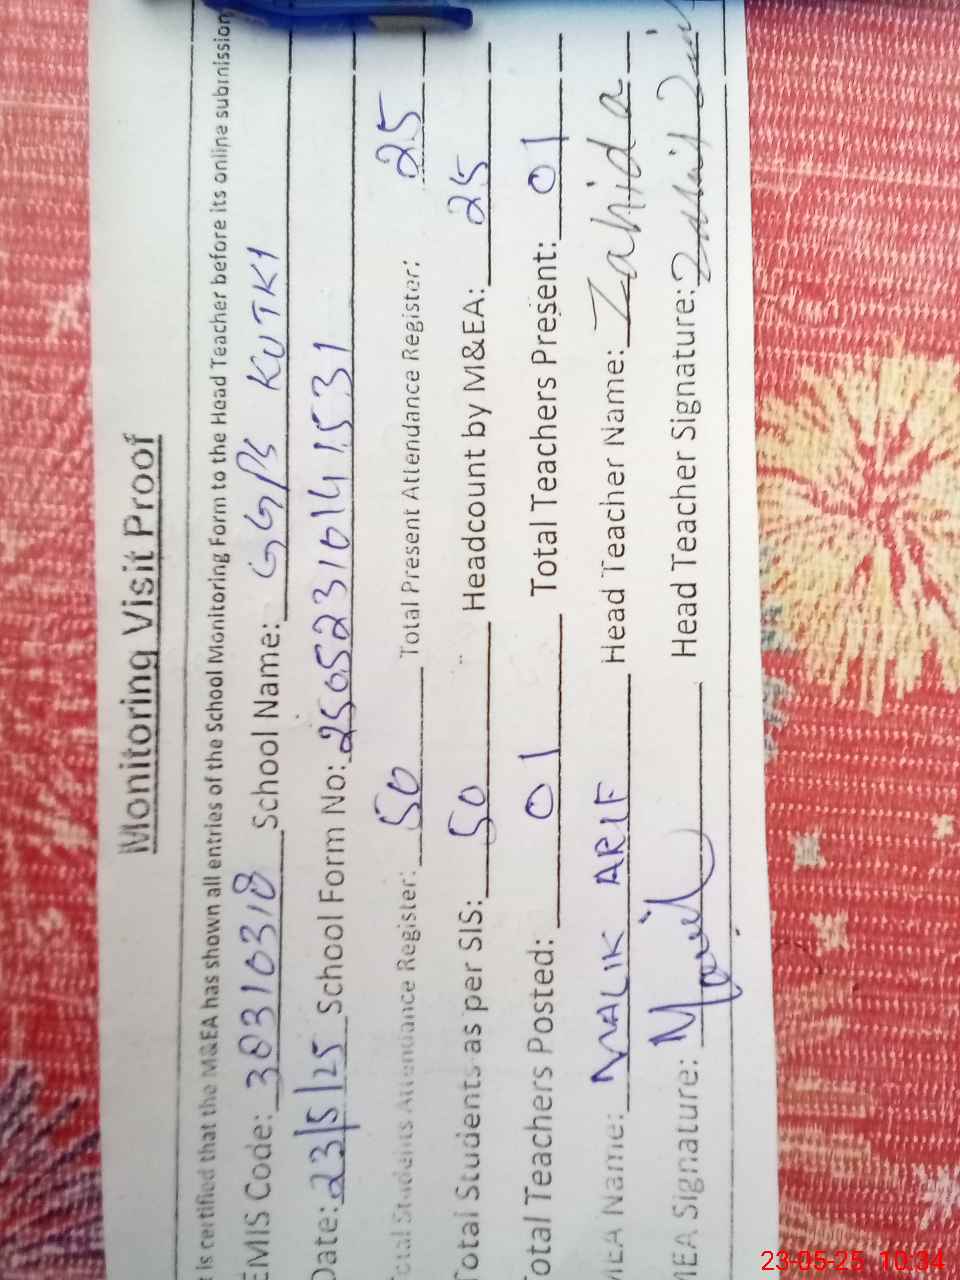 Monitoring Visit Proof
t is certified that the M&EA has shown all entries of the School Monitoring Form to the Head Teacher before its online submission
EMIS Code: 38310318 School Name: GGPS KUTKI
Date: 23/5/25 School Form No: 2505231014 1531
Total Students Attendance Register: 50 Total Present Attendance Register: 25
Total Students as per SIS: 50 Headcount by M&EA: 25
Total Teachers Posted: 01 Total Teachers Present: 01
MEA Name: MALIK ARIF Head Teacher Name: Zahida
MEA Signature: Head Teacher Signature:
23-05-25 10:34